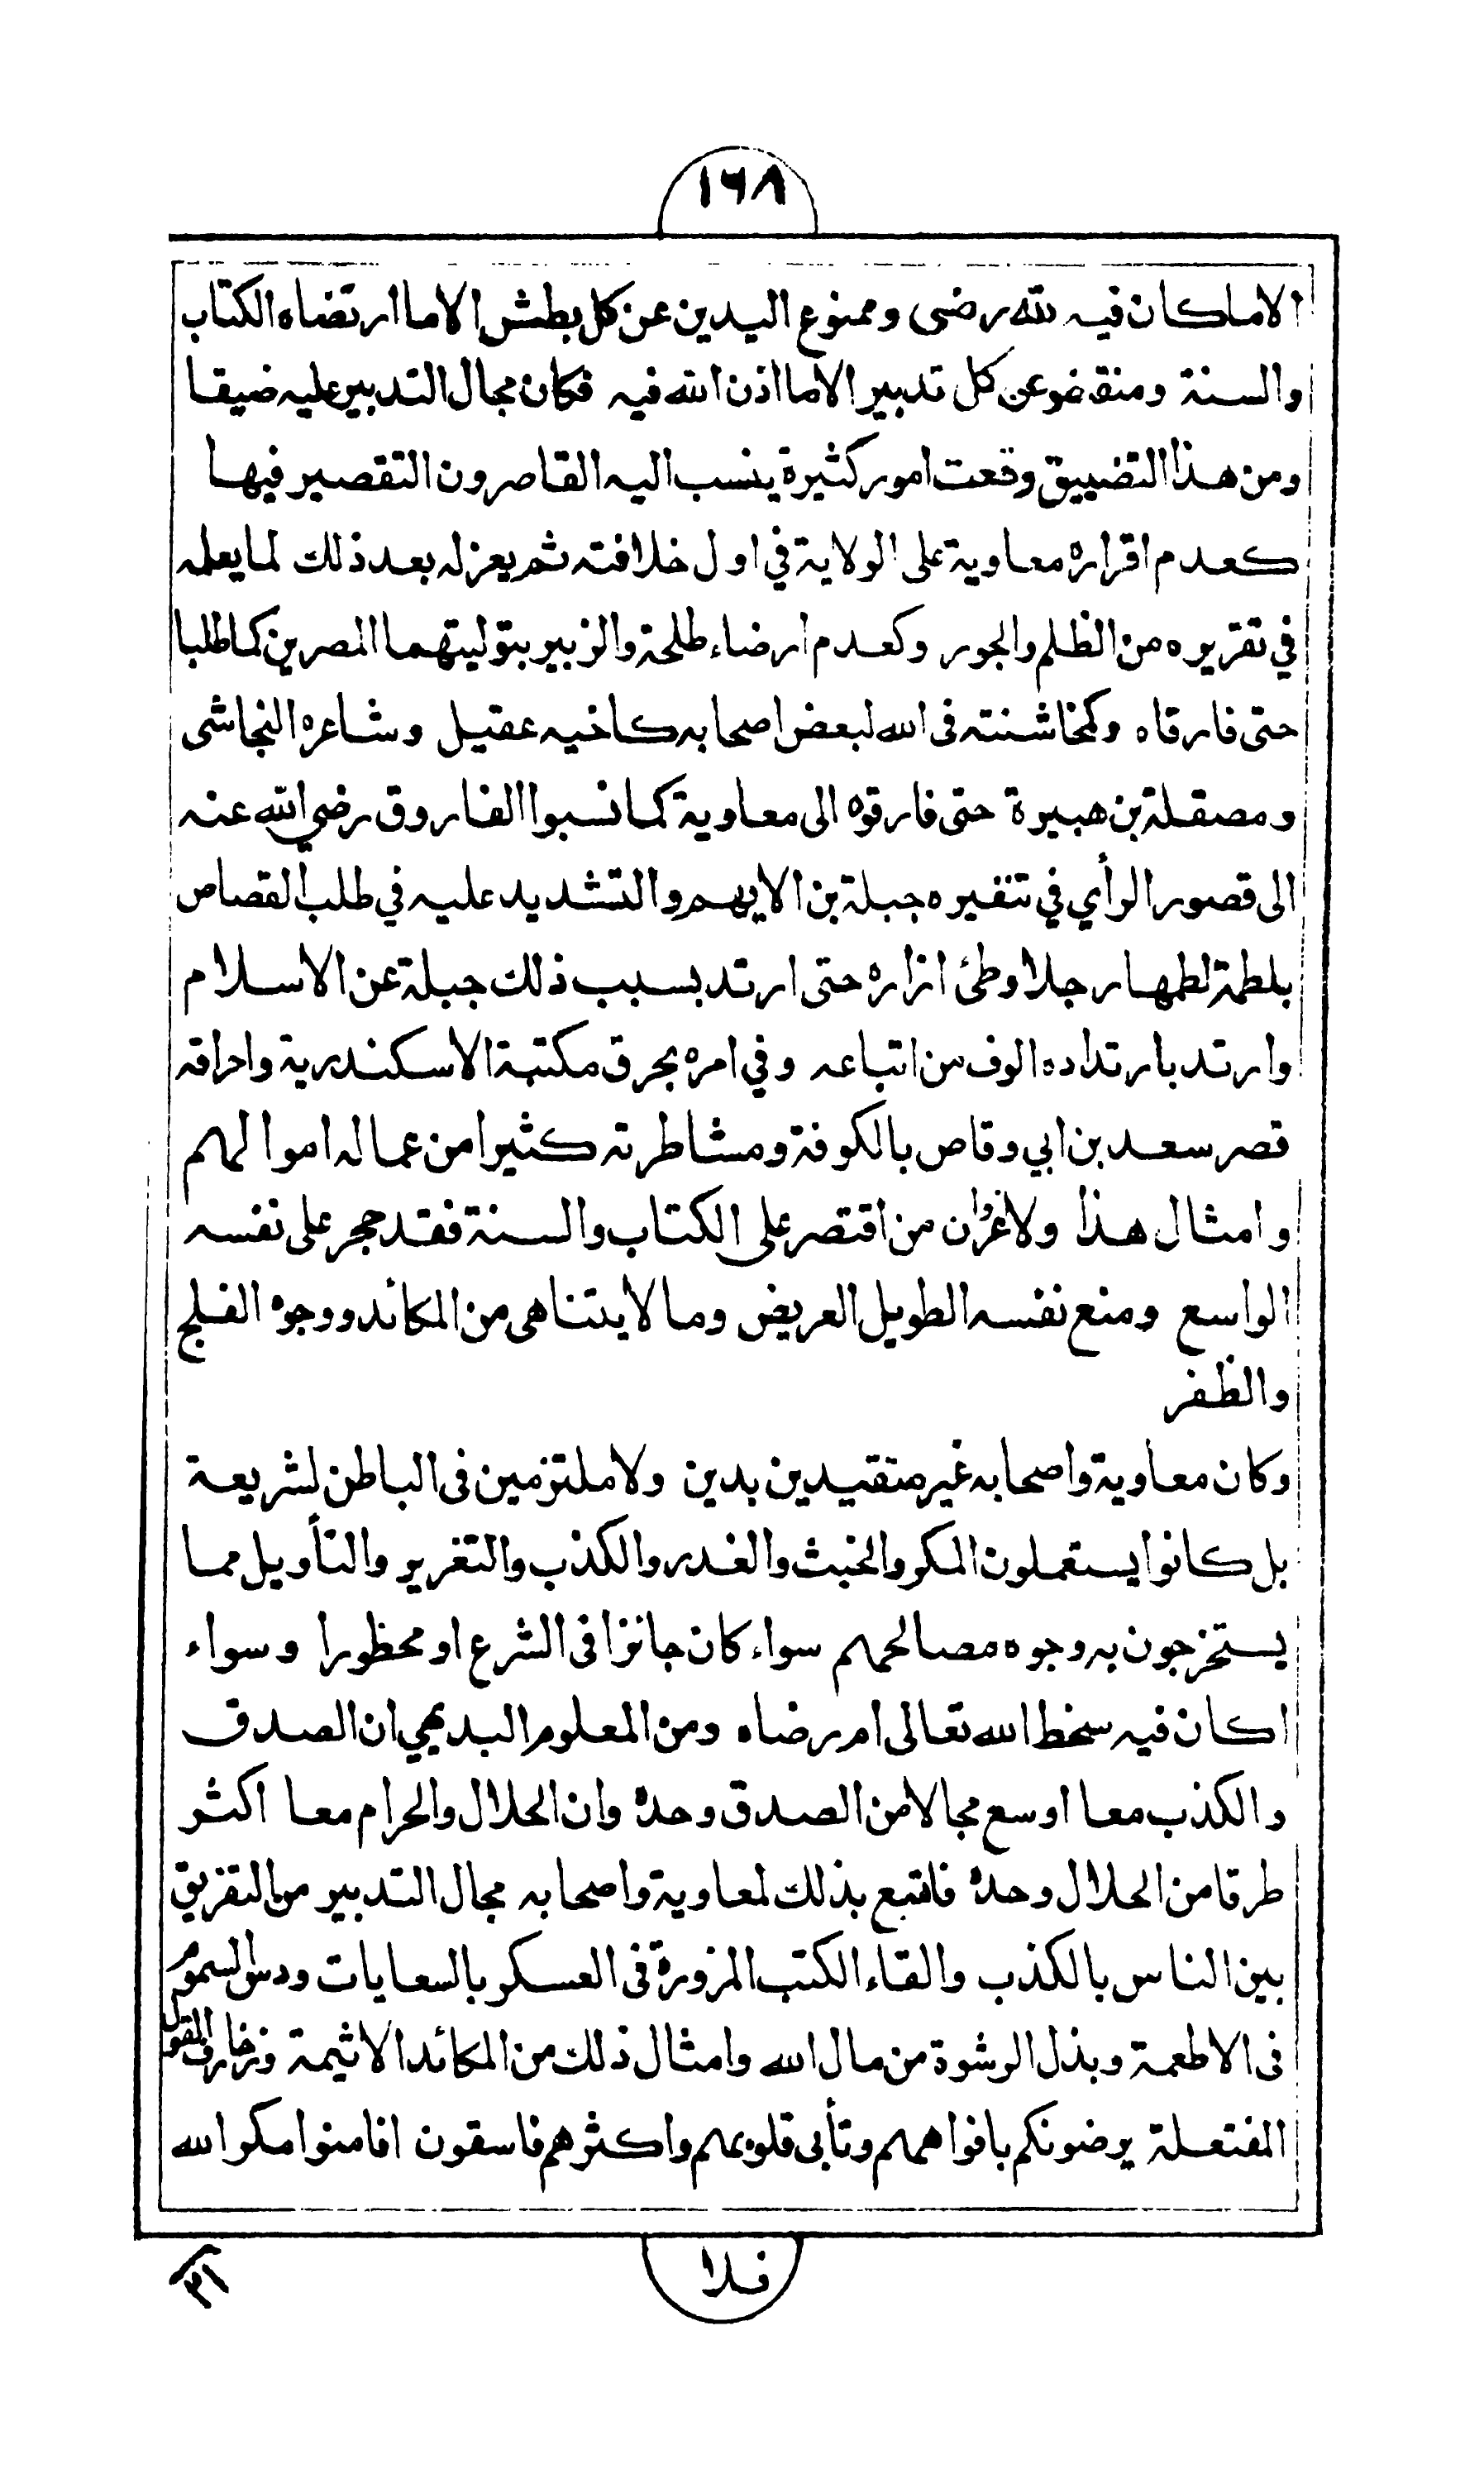 ١٦٨
الا ماكان فيه لله رضى وممنوع اليدين عن كل بطش الا ما ارتضاه الكتاب
والسنة ومنقضو عن كل تدبير الا ما اذن الله فيه فكان مجال التدبير عليه ضيقا
ومن هذا التضييق وقعت امور كثيرة ينسب اليه القاصرون التقصير فيها
كعدم اقراره معاوية على الولاية في اول خلافته ثم يعزله بعد ذلك لما يعلمه
في تقريره من الظلم والجور وكعدم ارضاء طلحة والزبير بتوليتهما المصرين كما طلبا
حتى فارقاه وكمخاشنته فى الله لبعض اصحابه كاخيه عقيل وشاعره النجاشى
ومصقلة بن هبيرة حتى فارقوه الى معاوية كما نسبوا الفاروق رضي الله عنه
الى قصور الرأي في تنفيره جبلة بن الايهم والتشديد عليه في طلب القصاص
بلطمة لطمها رجلا وطئ ازاره حتى ارتد بسبب ذلك جبلة عن الاسلام
وارتد بارتداده الوف من اتباعه وفي امره بحرق مكتبة الاسكندرية واحراقه
قصر سعد بن ابي وقاص بالكوفة ومشاطرته كثيرا من عماله اموالهم
وامثال هذا ولا غرو ان من اقتصر على الكتاب والسنة فقد حجر على نفسه
الواسع ومنع نفسه الطويل العريض وما لا يتناهى من المكائد ووجوه الفلج
والظفر
وكان معاوية واصحابه غير متقيدين بدين ولا ملتزمين فى الباطن لشريعة
بل كانوا يستعملون المكر والخبث والغدر والكذب والتغرير والتأويل مما
يستخرجون به وجوه مصالحهم سواء كان جائزا فى الشرع او محظورا وسواء
اكان فيه سخط الله تعالى ام رضاه ومن المعلوم البديهي ان الصدق
والكذب معا اوسع مجالا من الصدق وحده وان الحلال والحرام معا اكثر
طرقا من الحلال وحده فاتسع بذلك لمعاوية واصحابه مجال التدبير من التفريق
بين الناس بالكذب والقاء الكتب المزورة فى العسكر بالسعايات ودس السموم
فى الاطعمة وبذل الرشوة من مال الله وامثال ذلك من المكائد الاثيمة وزخارف القول
المفتعلة يرضونكم بافواههم وتأبى قلوبهم واكثرهم فاسقون افامنوا مكر الله
فلا
٣١